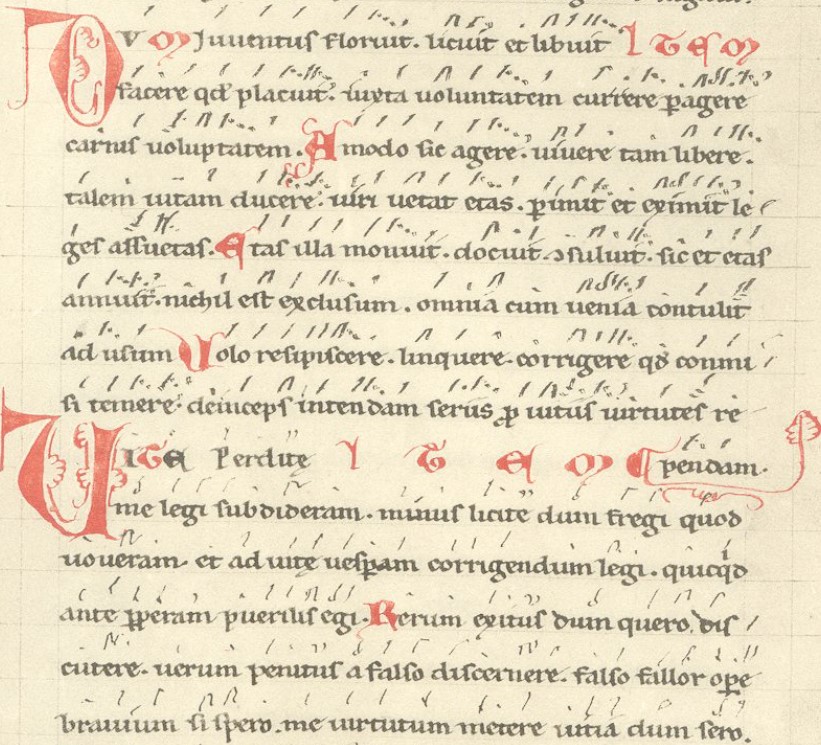 Dum Juventus floruit. licuit et libuit ITEM
facere qd placuit. iuxta uoluntatem currere pagere
carnis uoluptatem. Amodo sic agere. uiuere tam libere.
talem uitam ducere. uiri uetat etas. pimit et eximit le
ges assuetas. Etas illa monuit. docuit ɔsuluit. sic et etas
annuit. nichil est exclusum. omnia cum uenia contulit
ad usum Volo resipiscere. linquere corrigere qd commi
si temere. deinceps intendam seriis p uitiis uirtutes re
VITE Perdite I T E M pendam.
me legi subdideram. minus licite dum fregi quod
uoueram et ad uitę uespam corrigendum legi. quicqd
ante pperam puerilis egi. Rerum exitus dum quero. dis
cutere. uerum penitus a falso discernere. falso fallor ope
brauium si spero. me uirtutum metere uitia dum sero.